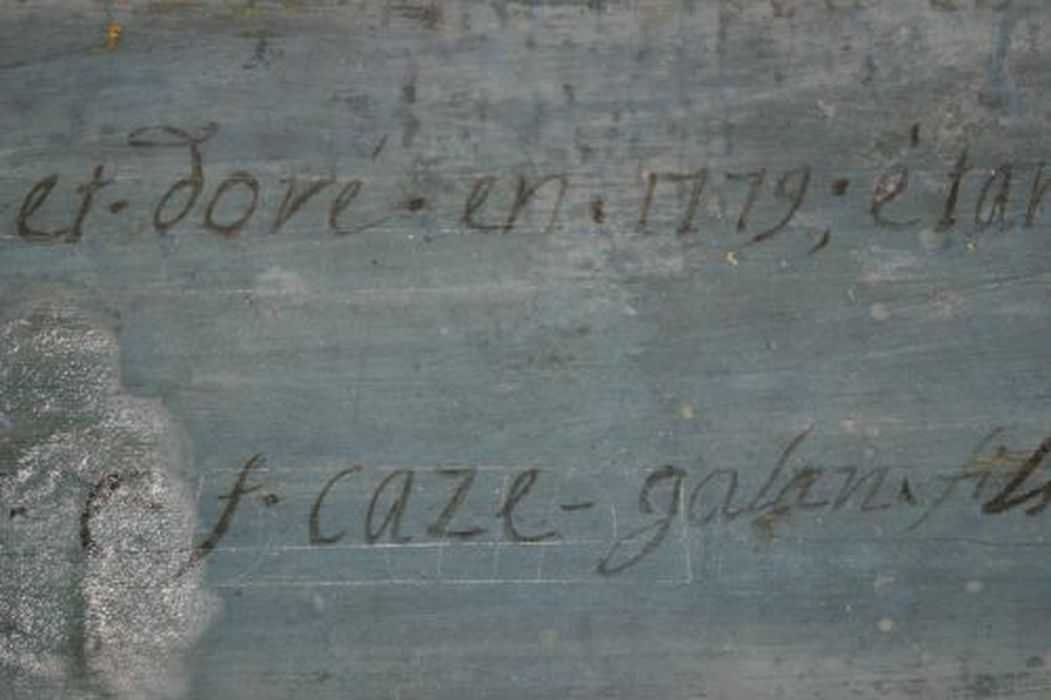 et · doré · en · 1779, · étan
f · caze - galan · fils